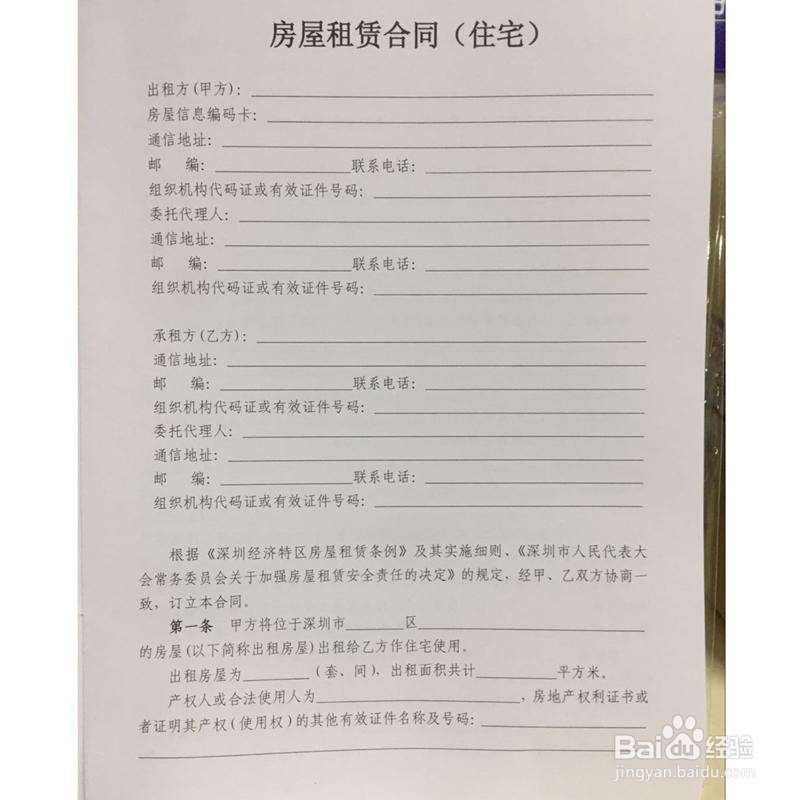 房屋租赁合同（住宅）
出租方(甲方)：
房屋信息编码卡：
通信地址：
邮 编： 联系电话：
组织机构代码证或有效证件号码：
委托代理人：
通信地址：
邮 编： 联系电话：
组织机构代码证或有效证件号码：
承租方(乙方)：
通信地址：
邮 编： 联系电话：
组织机构代码证或有效证件号码：
委托代理人：
通信地址：
邮 编： 联系电话：
组织机构代码证或有效证件号码：
根据《深圳经济特区房屋租赁条例》及其实施细则、《深圳市人民代表大
会常务委员会关于加强房屋租赁安全责任的决定》的规定，经甲、乙双方协商一
致，订立本合同。
第一条 甲方将位于深圳市 区
的房屋(以下简称出租房屋)出租给乙方作住宅使用。
出租房屋为 (套、间)，出租面积共计 平方米。
产权人或合法使用人为 ，房地产权利证书或
者证明其产权(使用权)的其他有效证件名称及号码：
Baidu经验
jingyan.baidu.com